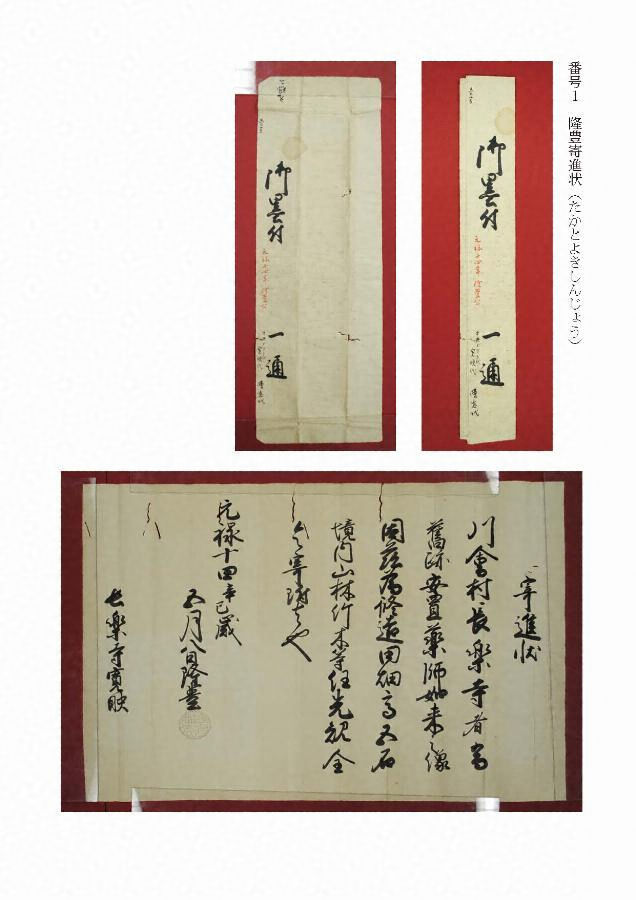 番号1 隆豊寄進状(たかとよきしんじょう)
御墨付
元禄十四年 隆豊公
一通
御墨付
元禄十四年 隆豊公
一通
寄進状
川會村長楽寺者當
舊跡安置薬師如来之像
因茲為修造田畑高五石
境内山林竹木等任先規全
令寄附者也
元禄十四辛巳歳
五月八日隆豊
長楽寺實映